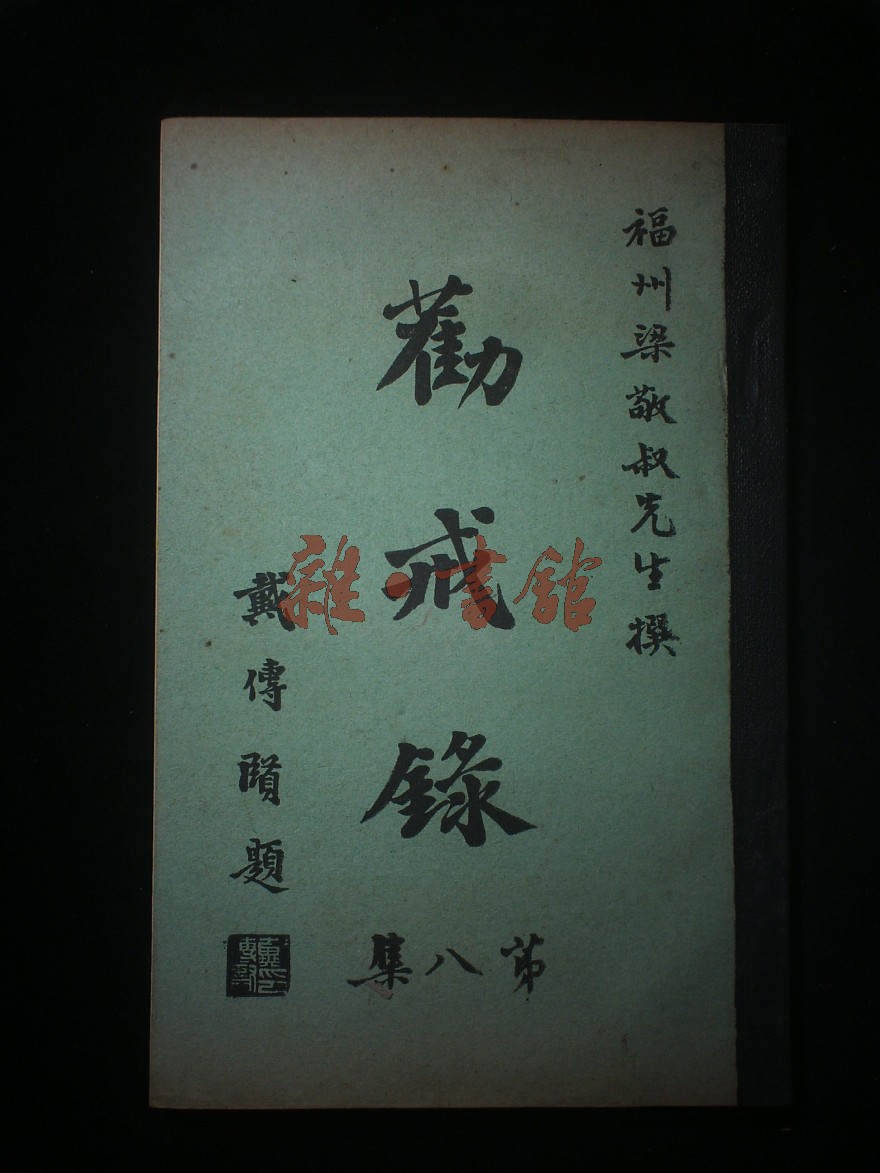 福州梁敬叔先生撰
勸戒錄
第八集
戴傳賢題
雜·書館